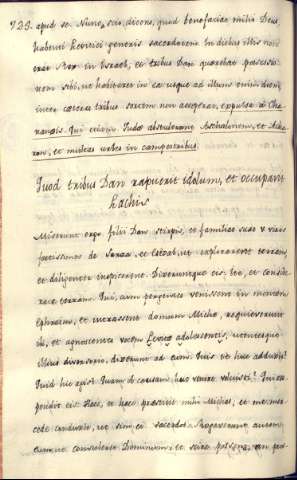 723. apud se. Nunc, scio, dicens, quod benefaciet mihi Deus
habenti Levitici generis sacerdotem In diebus illis non
erat Rex in Israel, et tribus Dan quaerebat possessio
nem sibi, ut habitaret in ea usque ad illum enim diem,
inter caeteras tribus sortem non acceperat, expulsa à Cha
nanaeis. Qui etiam Judae abstulerunt Aschalonem, et Acha
ron, et multas urbes in campestribus.
Quod tribus Dan rapuerit idolum, et occupavit
Lachis
Miserunt ergo filii Dan stirpis, et familiae suae V viros
fortissimos de Saraa, et Estaol, ut explorarent terram,
et diligenter inspicerent. Dixeruntque eis. Ite, et conside
rate terram. Qui, cum pergentes venissent in montem
Ephraim, et intrassent domum Michae, requieverunt
ibi, et agnoscentes vocem Levitae adolescentis, utentesque
illius diversorio, dixerunt ad eum. Quis te huc adduxit?
Quid hic agis? Quam ob causam huc venire voluisti? Qui res
pondit eis. Haec, et haec praestitit mihi Michas, et me mer
cede conduxit, ut sim ei sacerdos Rogaverunt autem
eum, ut consuleret Dominum, et scire possent, an pros